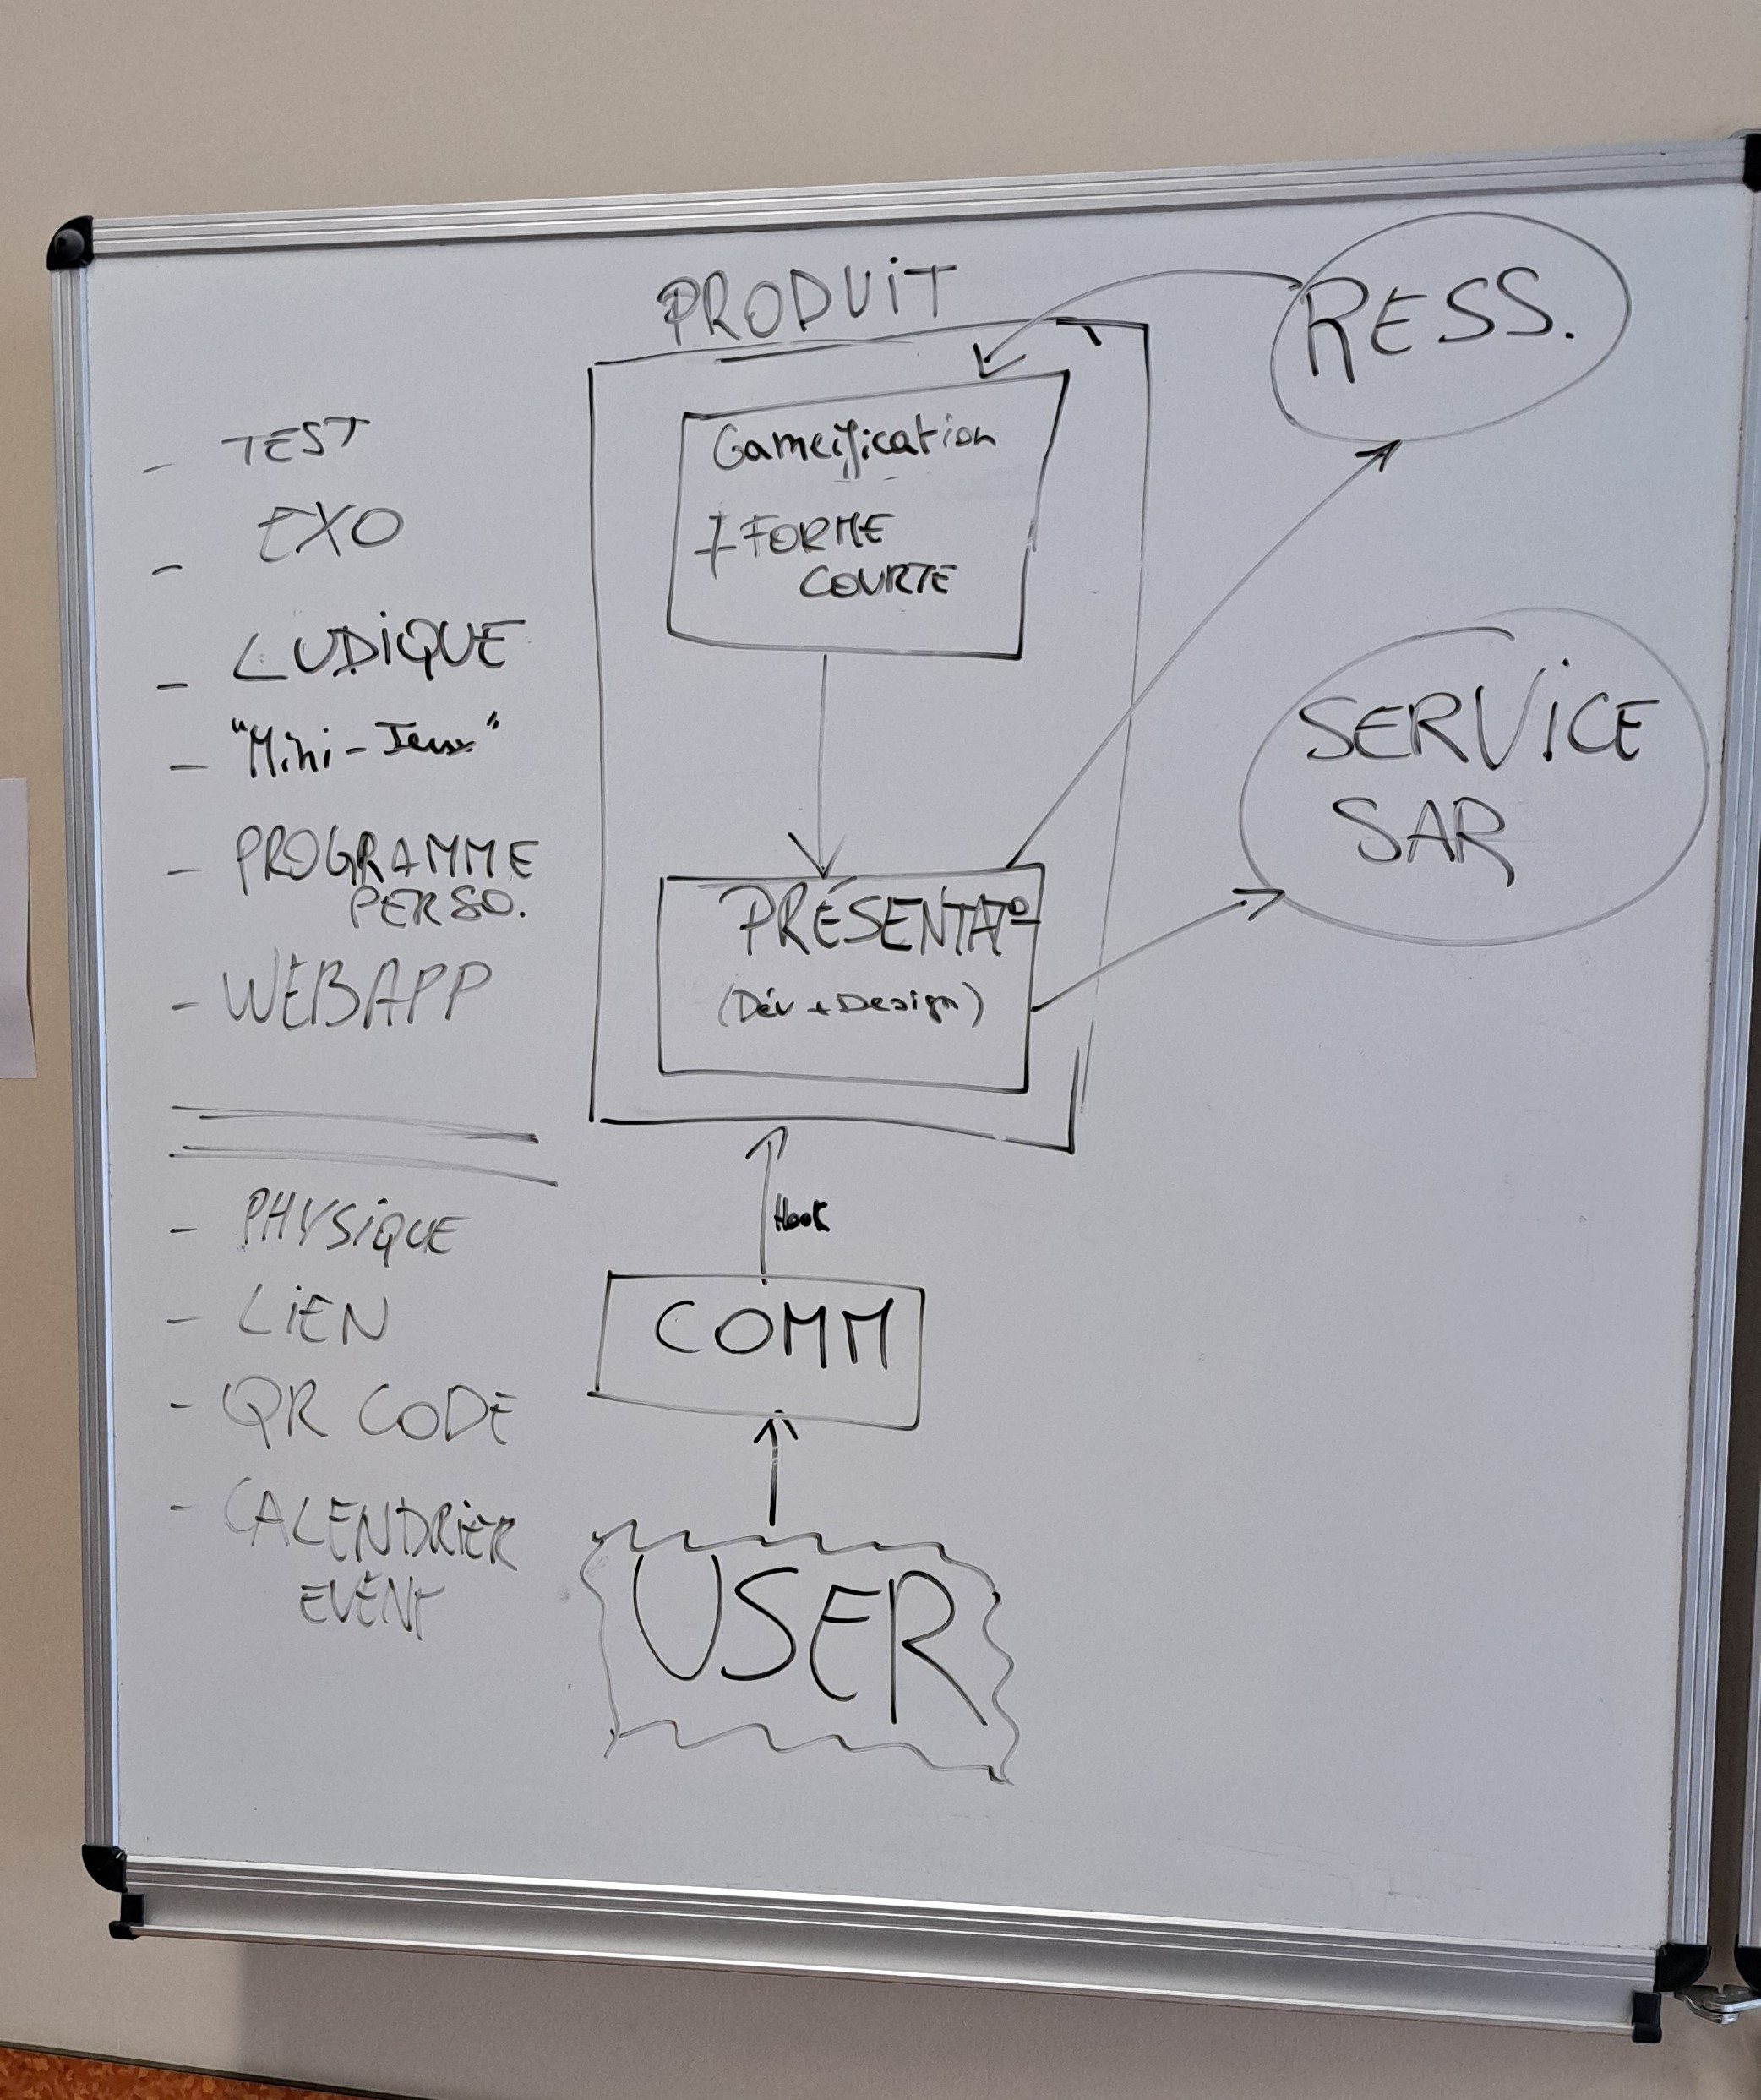 PRODUiT
RESS.
- TEST
- EXO
- LUDiQUE
- "Mini-Jeux"
- PROGRAMME
PERSO.
- WEBAPP
Gameification
+ FORME
COURTE
SERViCE
SAR
PRÉSENTAT°
(Dév + Design)
- PHYSiQUE
- LiEN
- QR CODE
- CALENDRiER
EVENT
Hook
COMM
USER